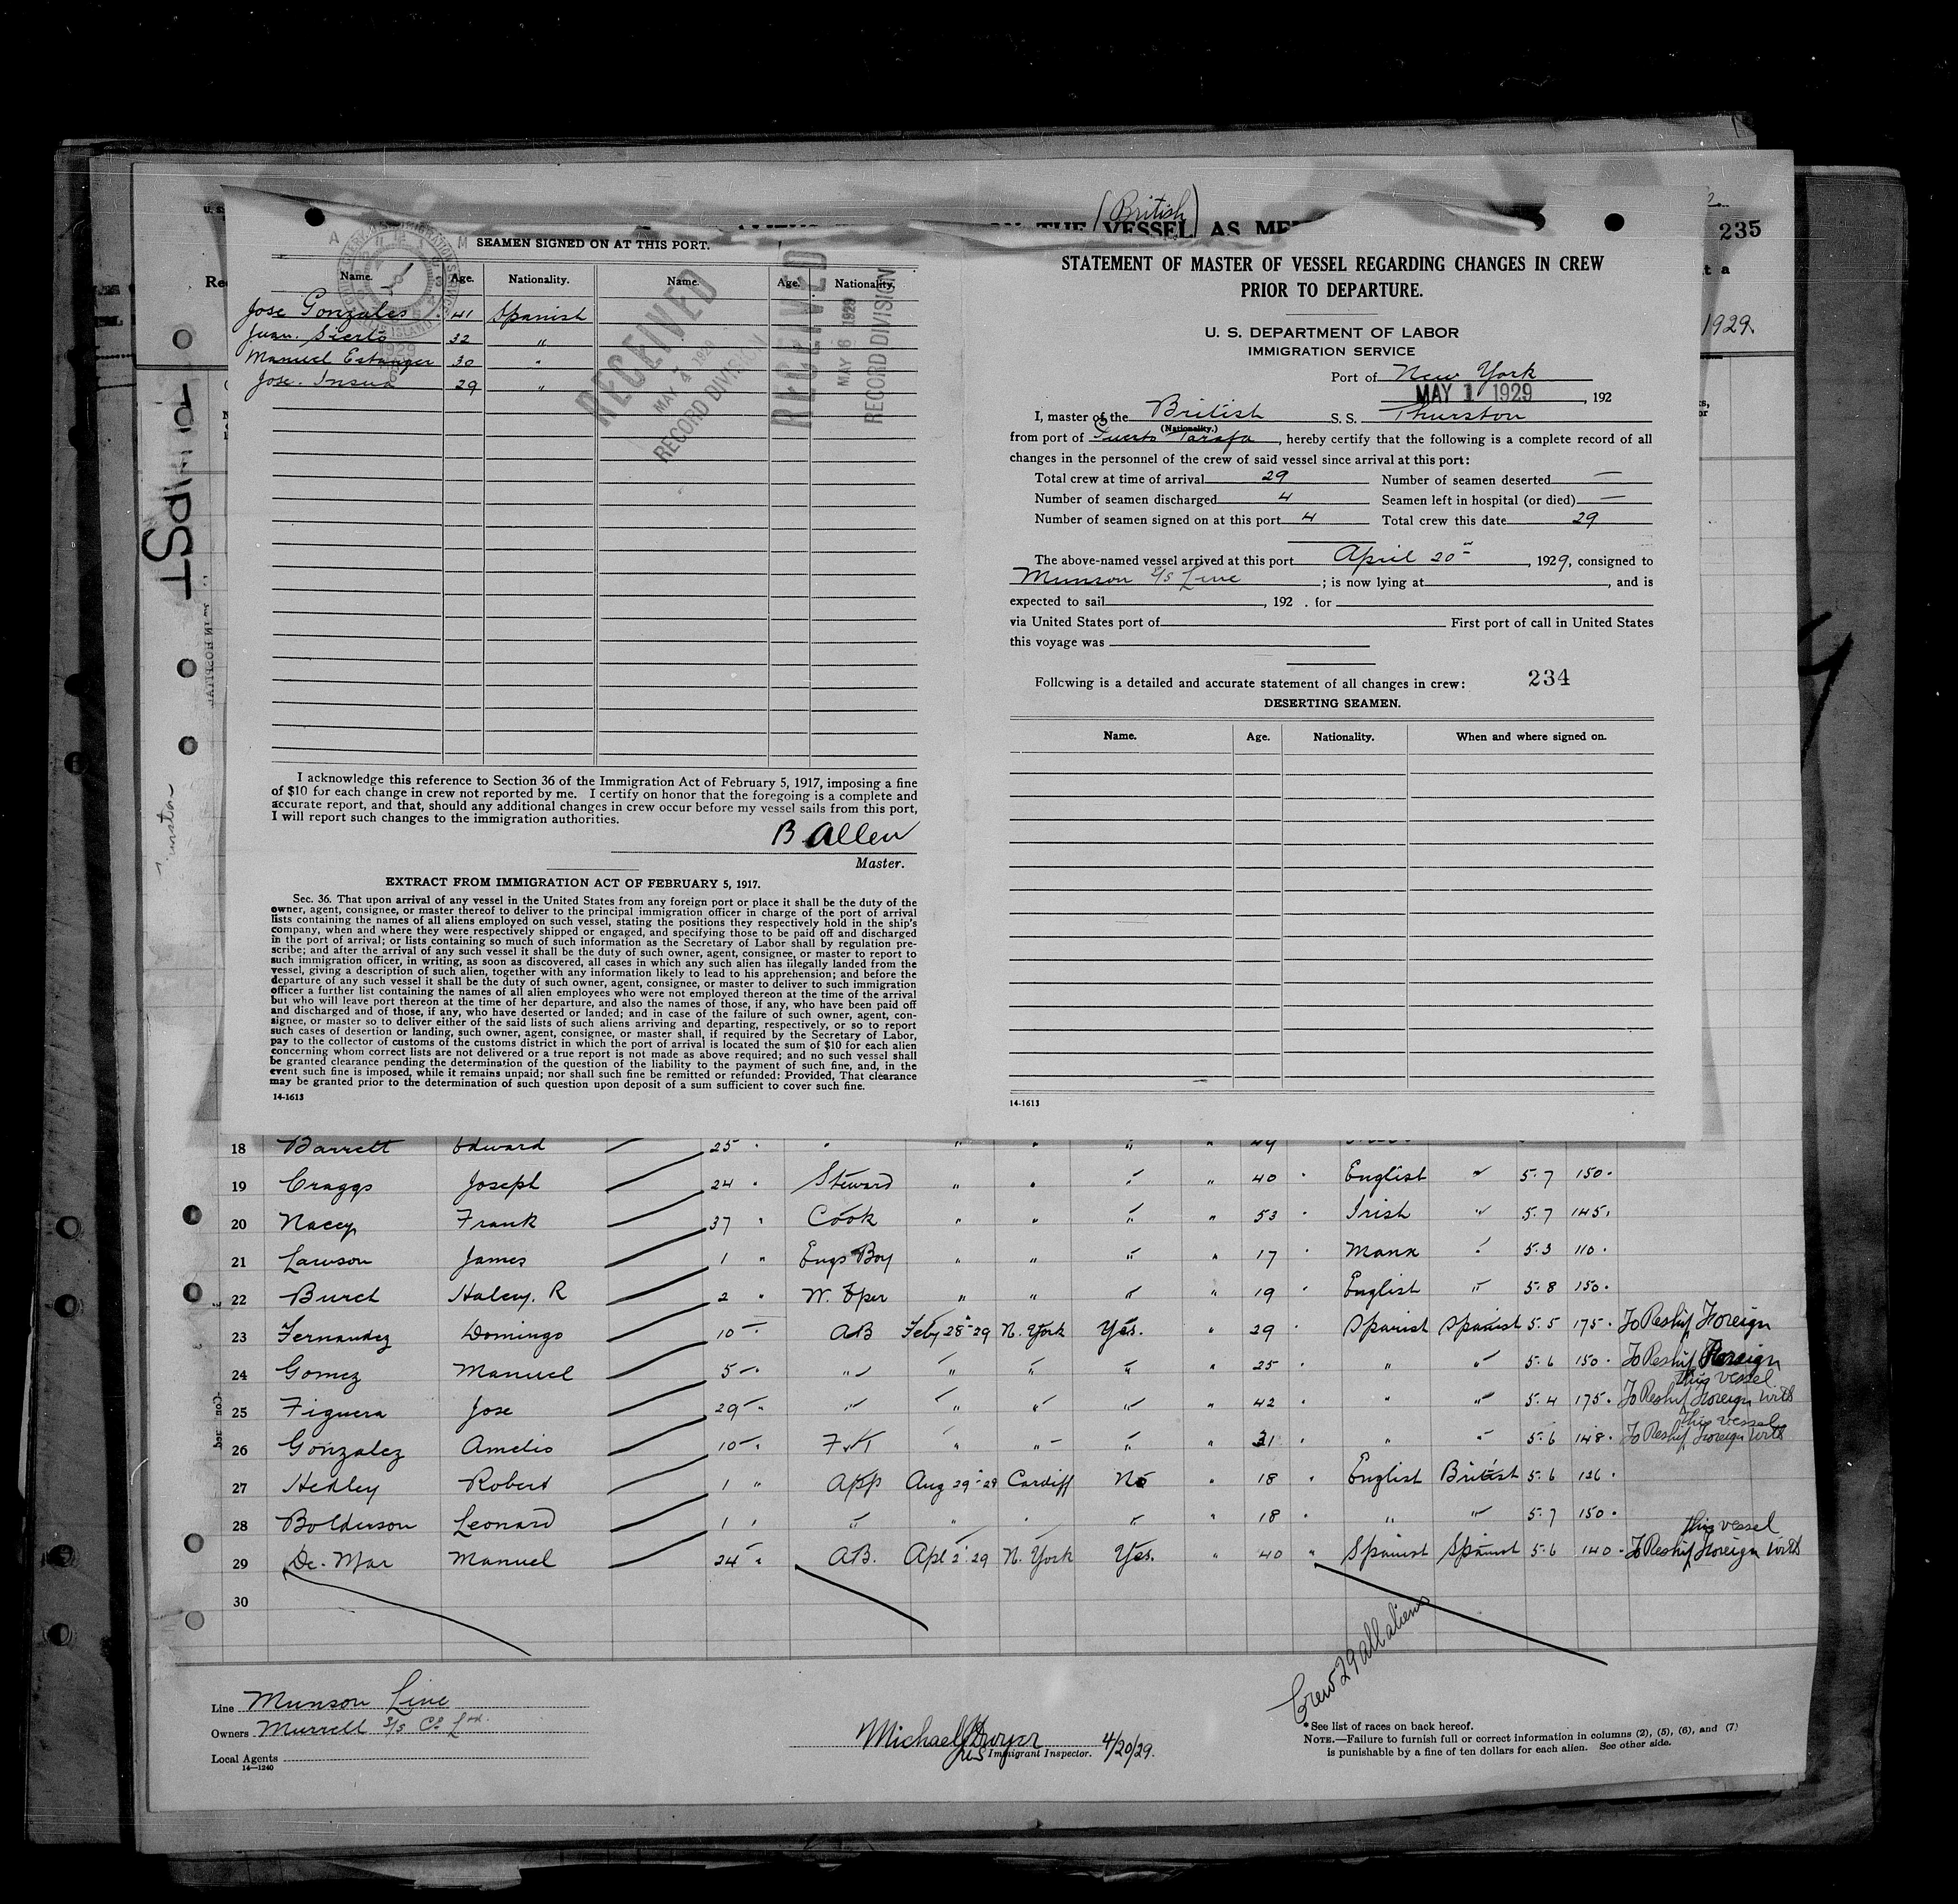 (British)
VESSEL AS
235
1929.
SEAMEN SIGNED ON AT THIS PORT.
Name. Age. Nationality. Name. Age. Nationality.
Jose Gonzales 41 Spanish
Juan. Sierto 32 "
Manuel Estanger 30 "
Jose. Insua 29 "
RECEIVED
MAY 4 1929
RECORD DIVISION
RECEIVED
MAY 8 1929
RECORD DIVISION
I acknowledge this reference to Section 36 of the Immigration Act of February 5, 1917, imposing a fine
of $10 for each change in crew not reported by me. I certify on honor that the foregoing is a complete and
accurate report, and that, should any additional changes in crew occur before my vessel sails from this port,
I will report such changes to the immigration authorities.
B Allen
Master.
EXTRACT FROM IMMIGRATION ACT OF FEBRUARY 5, 1917.
Sec. 36. That upon arrival of any vessel in the United States from any foreign port or place it shall be the duty of the
owner, agent, consignee, or master thereof to deliver to the principal immigration officer in charge of the port of arrival
lists containing the names of all aliens employed on such vessel, stating the positions they respectively hold in the ship's
company, when and where they were respectively shipped or engaged, and specifying those to be paid off and discharged
in the port of arrival; or lists containing so much of such information as the Secretary of Labor shall by regulation pre-
scribe; and after the arrival of any such vessel it shall be the duty of such owner, agent, consignee, or master to report to
such immigration officer, in writing, as soon as discovered, all cases in which any such alien has illegally landed from the
vessel, giving a description of such alien, together with any information likely to lead to his apprehension; and before the
departure of any such vessel it shall be the duty of such owner, agent, consignee, or master to deliver to such immigration
officer a further list containing the names of all alien employees who were not employed thereon at the time of the arrival
but who will leave port thereon at the time of her departure, and also the names of those, if any, who have been paid off
and discharged and of those, if any, who have deserted or landed; and in case of the failure of such owner, agent, con-
signee, or master so to deliver either of the said lists of such aliens arriving and departing, respectively, or so to report
such cases of desertion or landing, such owner, agent, consignee, or master shall, if required by the Secretary of Labor,
pay to the collector of customs of the customs district in which the port of arrival is located the sum of $10 for each alien
concerning whom correct lists are not delivered or a true report is not made as above required; and no such vessel shall
be granted clearance pending the determination of the question of the liability to the payment of such fine, and, in the
event such fine is imposed, while it remains unpaid; nor shall such fine be remitted or refunded: Provided, That clearance
may be granted prior to the determination of such question upon deposit of a sum sufficient to cover such fine.
14-1613
STATEMENT OF MASTER OF VESSEL REGARDING CHANGES IN CREW
PRIOR TO DEPARTURE.
U. S. DEPARTMENT OF LABOR
IMMIGRATION SERVICE
Port of New York
MAY 1 1929, 192
I, master of the British S. S. Thurston
(Nationality.)
from port of Puerto Tarafa, hereby certify that the following is a complete record of all
changes in the personnel of the crew of said vessel since arrival at this port:
Total crew at time of arrival 29 Number of seamen deserted —
Number of seamen discharged 4 Seamen left in hospital (or died) —
Number of seamen signed on at this port 4 Total crew this date 29
The above-named vessel arrived at this port April 20th, 1929, consigned to
Munson S/s Line; is now lying at , and is
expected to sail , 192 . for
via United States port of First port of call in United States
this voyage was
Following is a detailed and accurate statement of all changes in crew: 234
DESERTING SEAMEN.
Name. Age. Nationality. When and where signed on.
14-1613
18 Barrett Edward 25 " " " " " " 49
19 Craggs Joseph 24 " Steward " " " " 40 " English " 5.7 150.
20 Nacey Frank 37 " Cook " " " " 53 " Irish " 5.7 145.
21 Lawson James 1 " Engs Boy " " " " 17 " Manx " 5.3 110.
22 Burch Haley. R 2 " W. Oper " " " " 19 " English " 5.8 150.
23 Fernandez Domingo 10 " AB Feby 28" 29 N. York Yes. " 29 " Spanish Spanish 5.5 175. To Reship Foreign
24 Gomez Manuel 5 " " " " " " 25 " " " 5.6 150. To Reship Foreign
this vessel
25 Figuera Jose 29 " " " " " " 42 " " " 5.4 175. To Reship Foreign with
this vessel
26 Gonzalez Amelio 10 " F&T " " " " 31 " " " 5.6 148. To Reship Foreign with
27 Hedley Robert 1 " App Aug 29" 28 Cardiff No " 18 " English British 5.6 126.
28 Bolderson Leonard 1 " " " " " " 18 " " " 5.7 150.
this vessel
29 De. Mar Manuel 24 " AB. Apl 2" 29 N. York Yes. " 40 " Spanish Spanish 5.6 140. To Reship Foreign with
30
Crew 29 all aliens
Line Munson Line
Owners Murrell S/s Co Ltd.
Local Agents
14—1240
Michael J Dwyer 4/20/29.
US Immigrant Inspector.
*See list of races on back hereof.
NOTE.—Failure to furnish full or correct information in columns (2), (5), (6), and (7)
is punishable by a fine of ten dollars for each alien. See other side.